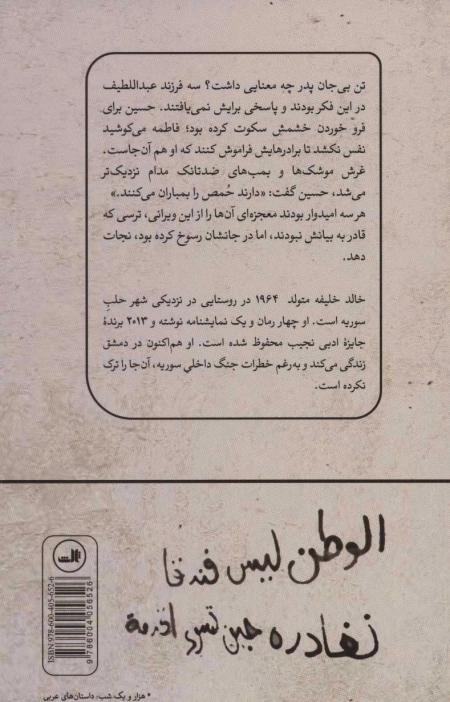 تن بی‌جان پدر چه معنایی داشت؟ سه فرزند عبداللطیف
در این فکر بودند و پاسخی برایش نمی‌یافتند. حسین برای
فرو خوردن خشمش سکوت کرده بود؛ فاطمه می‌کوشید
نفس نکشد تا برادرهایش فراموش کنند که او هم آن‌جاست.
غرش موشک‌ها و بمب‌های ضدتانک مدام نزدیک‌تر
می‌شد، حسین گفت: «دارند حُمص را بمباران می‌کنند.»
هر سه امیدوار بودند معجزه‌ای آن‌ها را از این ویرانی، ترسی که
قادر به بیانش نبودند، اما در جانشان رسوخ کرده بود، نجات
دهد.
خالد خلیفه متولد ۱۹۶۴ در روستایی در نزدیکی شهر حلبِ
سوریه است. او چهار رمان و یک نمایشنامه نوشته و ۲۰۱۳ برندهٔ
جایزهٔ ادبی نجیب محفوظ شده است. او هم‌اکنون در دمشق
زندگی می‌کند و به‌رغم خطرات جنگ داخلی سوریه، آن‌جا را ترک
نکرده است.
الوطن ليس فندقا
نغادره حين تسوء
ثالث
ISBN 978-600-405-652-6
9786004056526
* هزار و یک شب: داستان‌های عربی